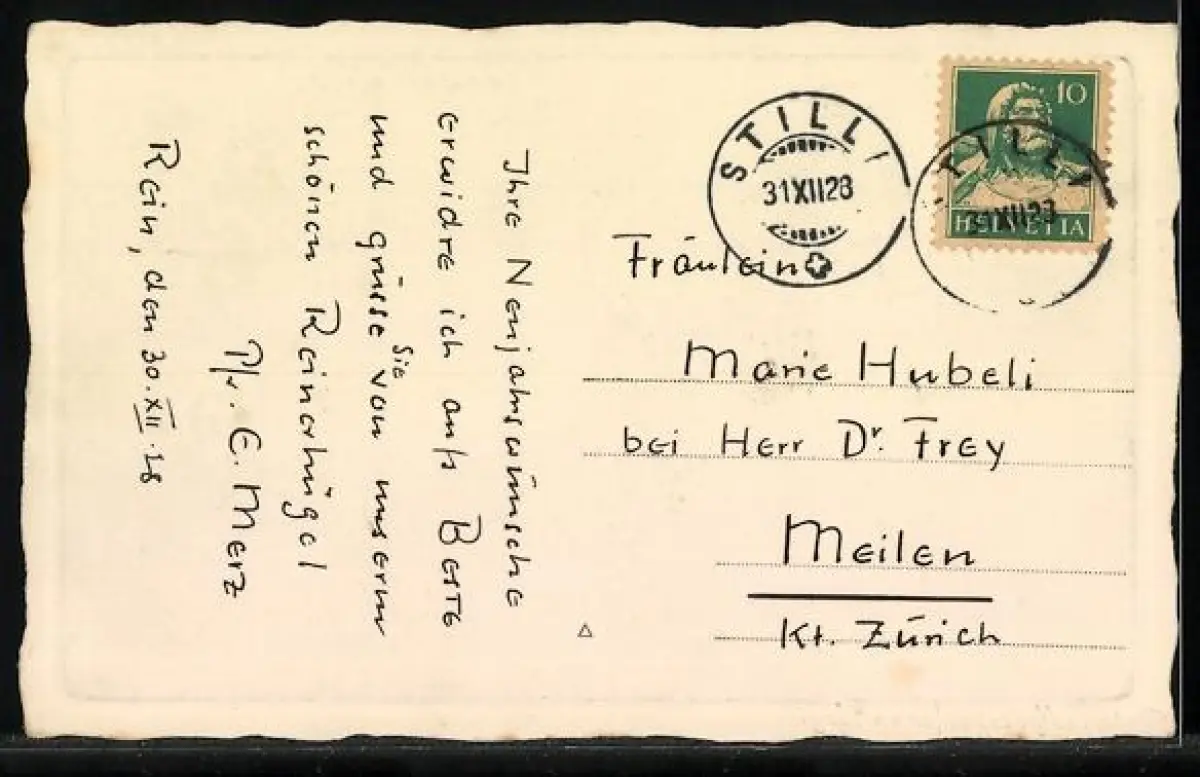 Ihre Neujahrswünsche
erwidre ich aufs Beste
und grüsse Sie von unserm
schönen Reinerhügel
Pfr. E. Merz
Rein, den 30.XII.28
STILLI
31XII28
10
HELVETIA
STILLI
31XII28
Fräulein
Marie Hubeli
bei Herr Dr. Frey
Meilen
Kt. Zürich